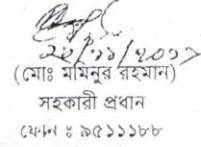 ২৮/১১/২০১৭
(মোঃ মমিনুর রহমান)
সহকারী প্রধান
ফোন ঃ ৯৫১১১৮৮